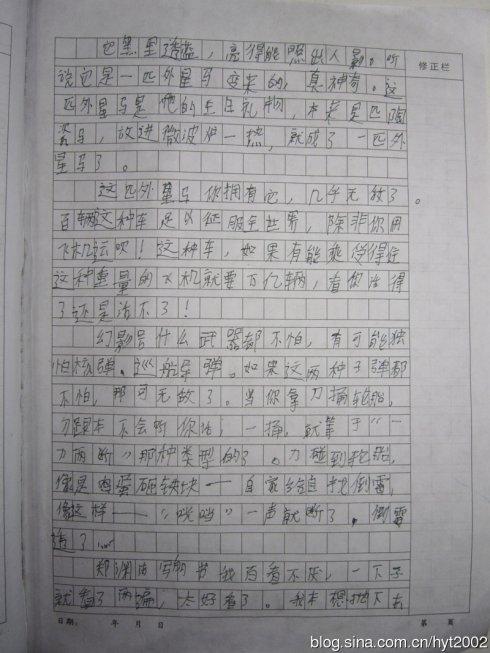 它黑里透蓝，亮得能照出人影。听
修正栏
说它是一匹外星马变来的，真神奇。这
匹外星马是他的生日礼物，本来是匹陶
瓷马，放进微波炉一热，就成了一匹外
星马了。
这匹外星马你拥有它，几乎无敌了。
百辆这种车足以征服全世界，除非你用
飞机运吹！这种车，如果有能乘受得住
这种重量的飞机就要万亿辆，看你活得
了还是活不了！
幻影号什么武器都不怕，有可能独
怕核弹、巡船导弹。如果这两种子弹都
不怕，那可无敌了。当你拿刀捅轮胎，
刀跟本不会听你话，一捅，就等于“一
刀两断”那种类型的了。刀碰到轮胎，
像是鸡蛋砸铁块——自家给自找倒霉，
像这样——“咣当”一声就断了，倒霉
透了……
郑渊洁写的书我百看不厌，一下子
就看了两遍，太好看了。我本想放下去
日期： 年 月 日
第 页
blog.sina.com.cn/hyt2002